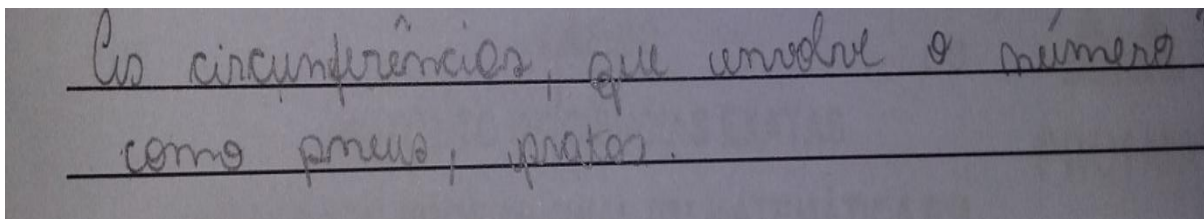 As circunferências, que envolve o número
como pneus, pratos.